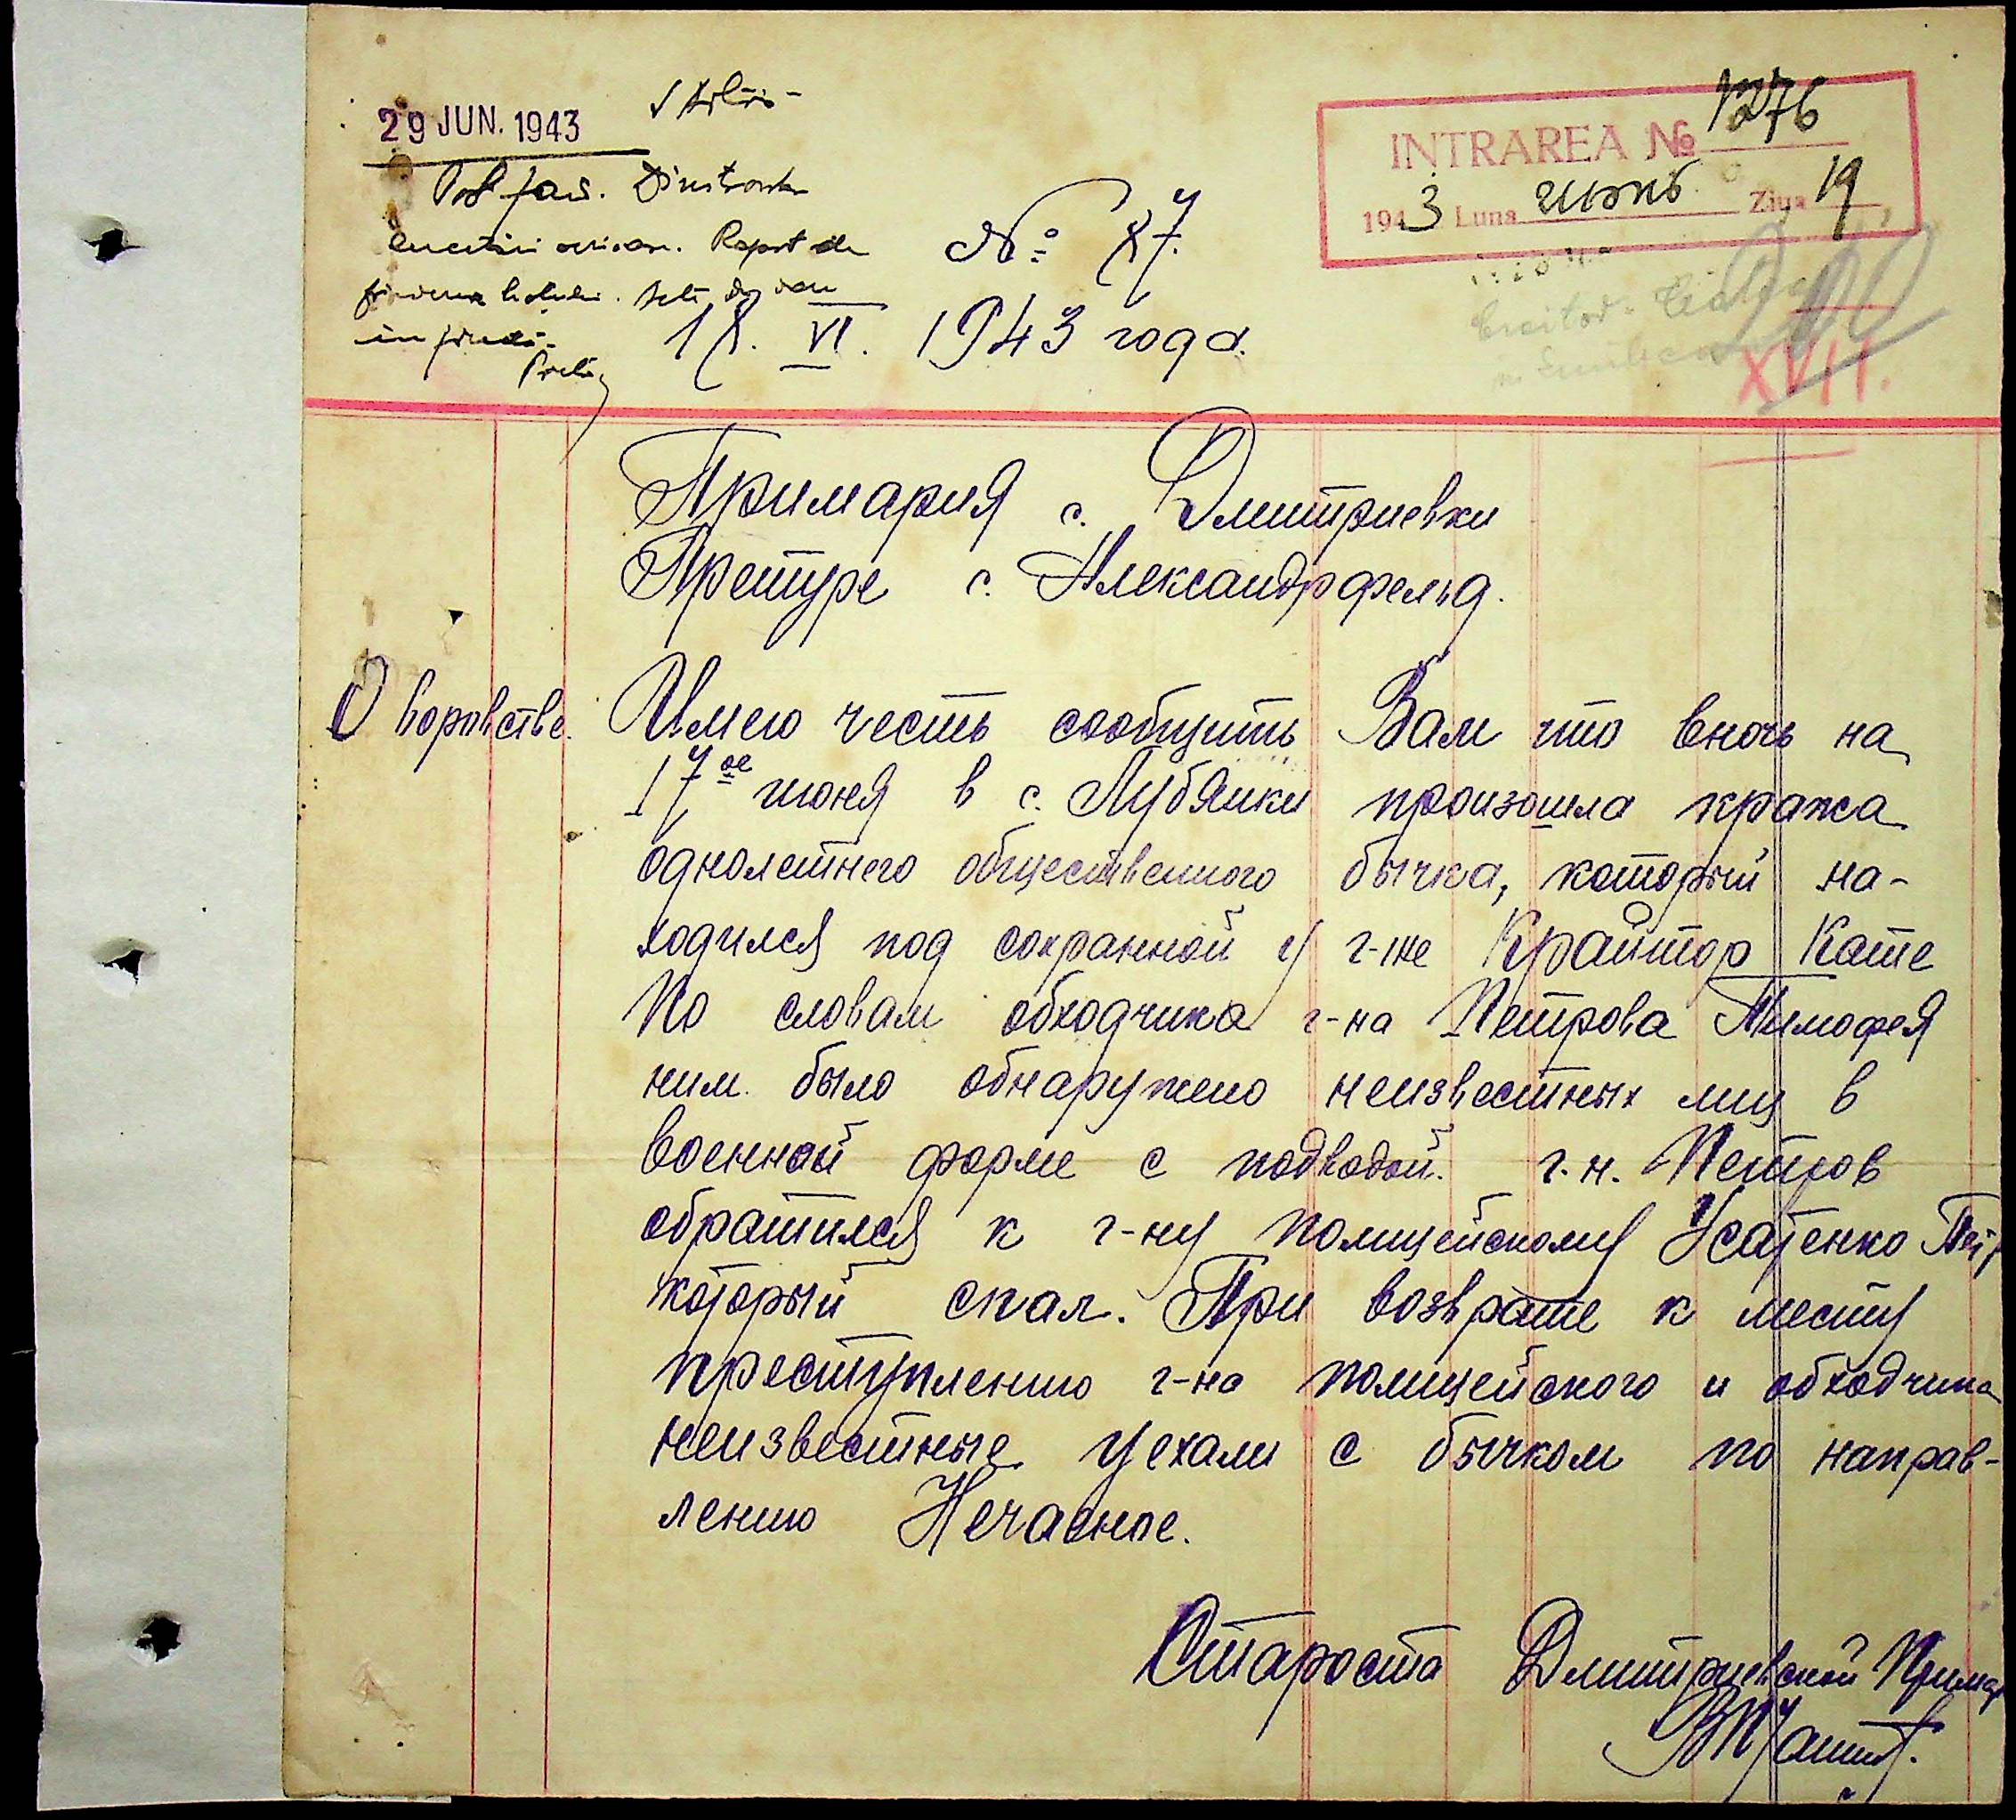 29 JUN. 1943
INTRAREA № 1276
1943 Luna июнь Ziua 19
Raport de
№ 87.
18. VI. 1943 года.
XVII.
Примария с. Дмитриевки
Претуре с. Александрфельд.
О воровстве. Имею честь сообщить Вам что вночь на
17ое июня в с. Лубянки произошла кража
однолетнего общественного бычка, который на-
ходился под сохранной у г-же Крайтор Кате
По словам обходчика г-на Петрова Тимофея
ним было обнаружено неизвестных лиц в
военной форме с подводой. г.н. Петров
обратился к г-ну полицейскому Усатенко Петр
который спал. При возврате к месту
преступлению г-на полицейского и обходчика
неизвестные уехали с бычком по направ-
лению Нечасное.
Староста Дмитриевской Примар